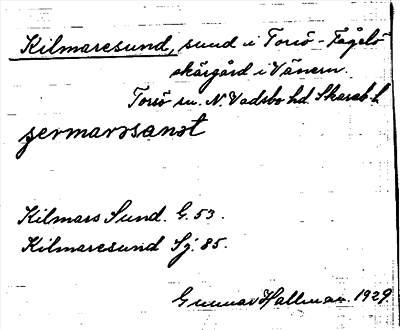 Kilmaresund, sund i Torsö-Fågelö
skärgård i Vänern.
Torsö sn. N. Vadsbo hd. Skarab. l.
Kilmars Sund. G. 53.
Kilmaresund Sj. 85.
Gunnar Hallman. 1929.